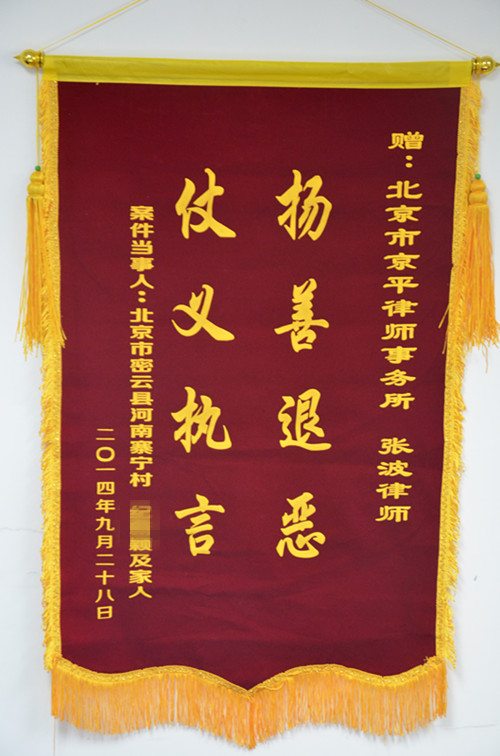 赠：北京市京平律师事务所 张波律师
扬善退恶
仗义执言
案件当事人：北京市密云县河南寨宁村 颖及家人
二〇一四年九月二十八日